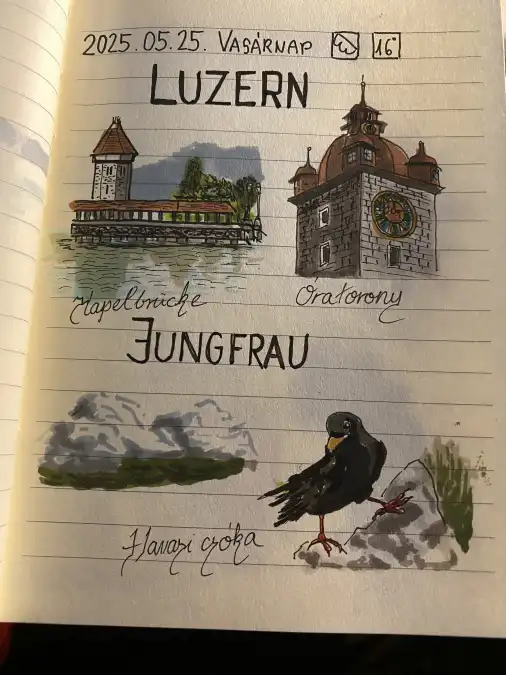 2025.05.25. VASÁRNAP 16°
LUZERN
Kapelbrücke Óratorony
JUNGFRAU
Havasi csóka